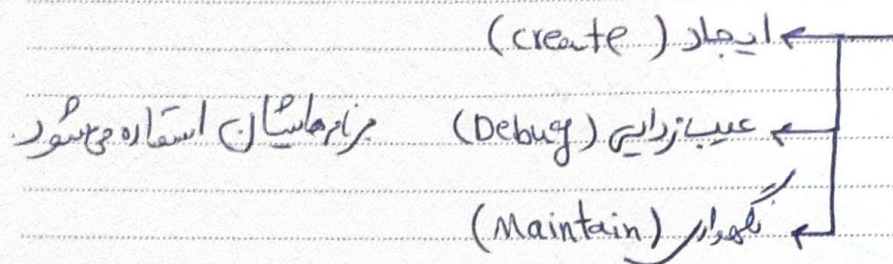 ایجاد (create)
عیب زدایی (Debug) برنامه‌هایشان استفاده می‌شود.
نگهداری (Maintain)